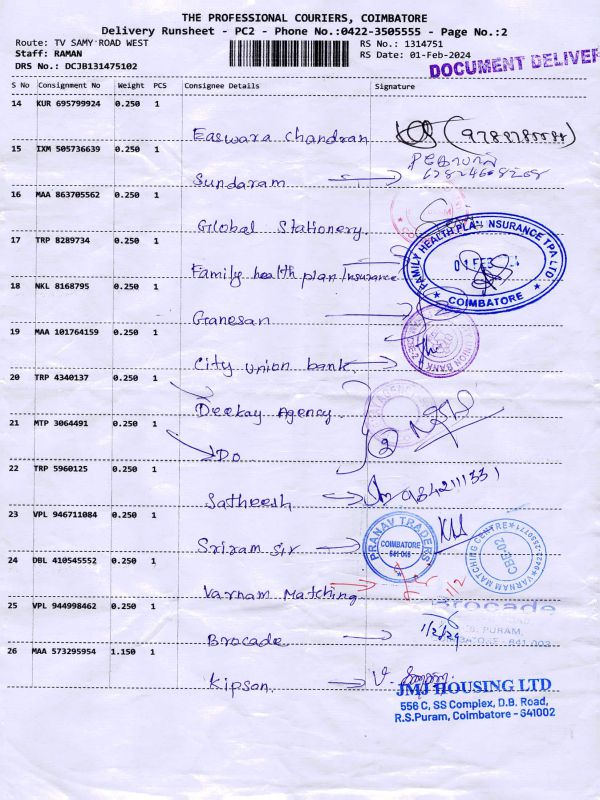 THE PROFESSIONAL COURIERS, COIMBATORE
Delivery Runsheet - PC2 - Phone No.:0422-3505555 - Page No.:2
Route: TV SAMY ROAD WEST
Staff: RAMAN
DRS No.: DCJB131475102
RS No.: 1314751
RS Date: 01-Feb-2024
DOCUMENT DELIVER
S No Consignment No Weight PCS Consignee Details Signature
14 KUR 695799924 0.250 1
Easwara Chandran
15 IXM 505736639 0.250 1
Sundaram
16 MAA 863705562 0.250 1
Global Stationery.
17 TRP 8289734 0.250 1
Family health plan Insurance
FAMILY HEALTH PLAN INSURANCE TPA LTD
COIMBATORE
18 NKL 8168795 0.250 1
Ganesan
19 MAA 101764159 0.250 1
City union bank.
20 TRP 4340137 0.250 1
Deekay Agency.
21 MTP 3064491 0.250 1
Do
2
22 TRP 5960125 0.250 1
Satheesh
23 VPL 946711084 0.250 1
Sriram sir
PRANAV TRADERS
COIMBATORE
24 DBL 410545552 0.250 1
Varnam Matching.
VARNAM MATCHING CENTRE
CBE-02
25 VPL 944998462 0.250 1
Brocade
Brocade
1/2/24
26 MAA 573295954 1.150 1
Kipson
JMJ HOUSING LTD
556 C, SS Complex, D.B. Road,
R.S.Puram, Coimbatore - 641002